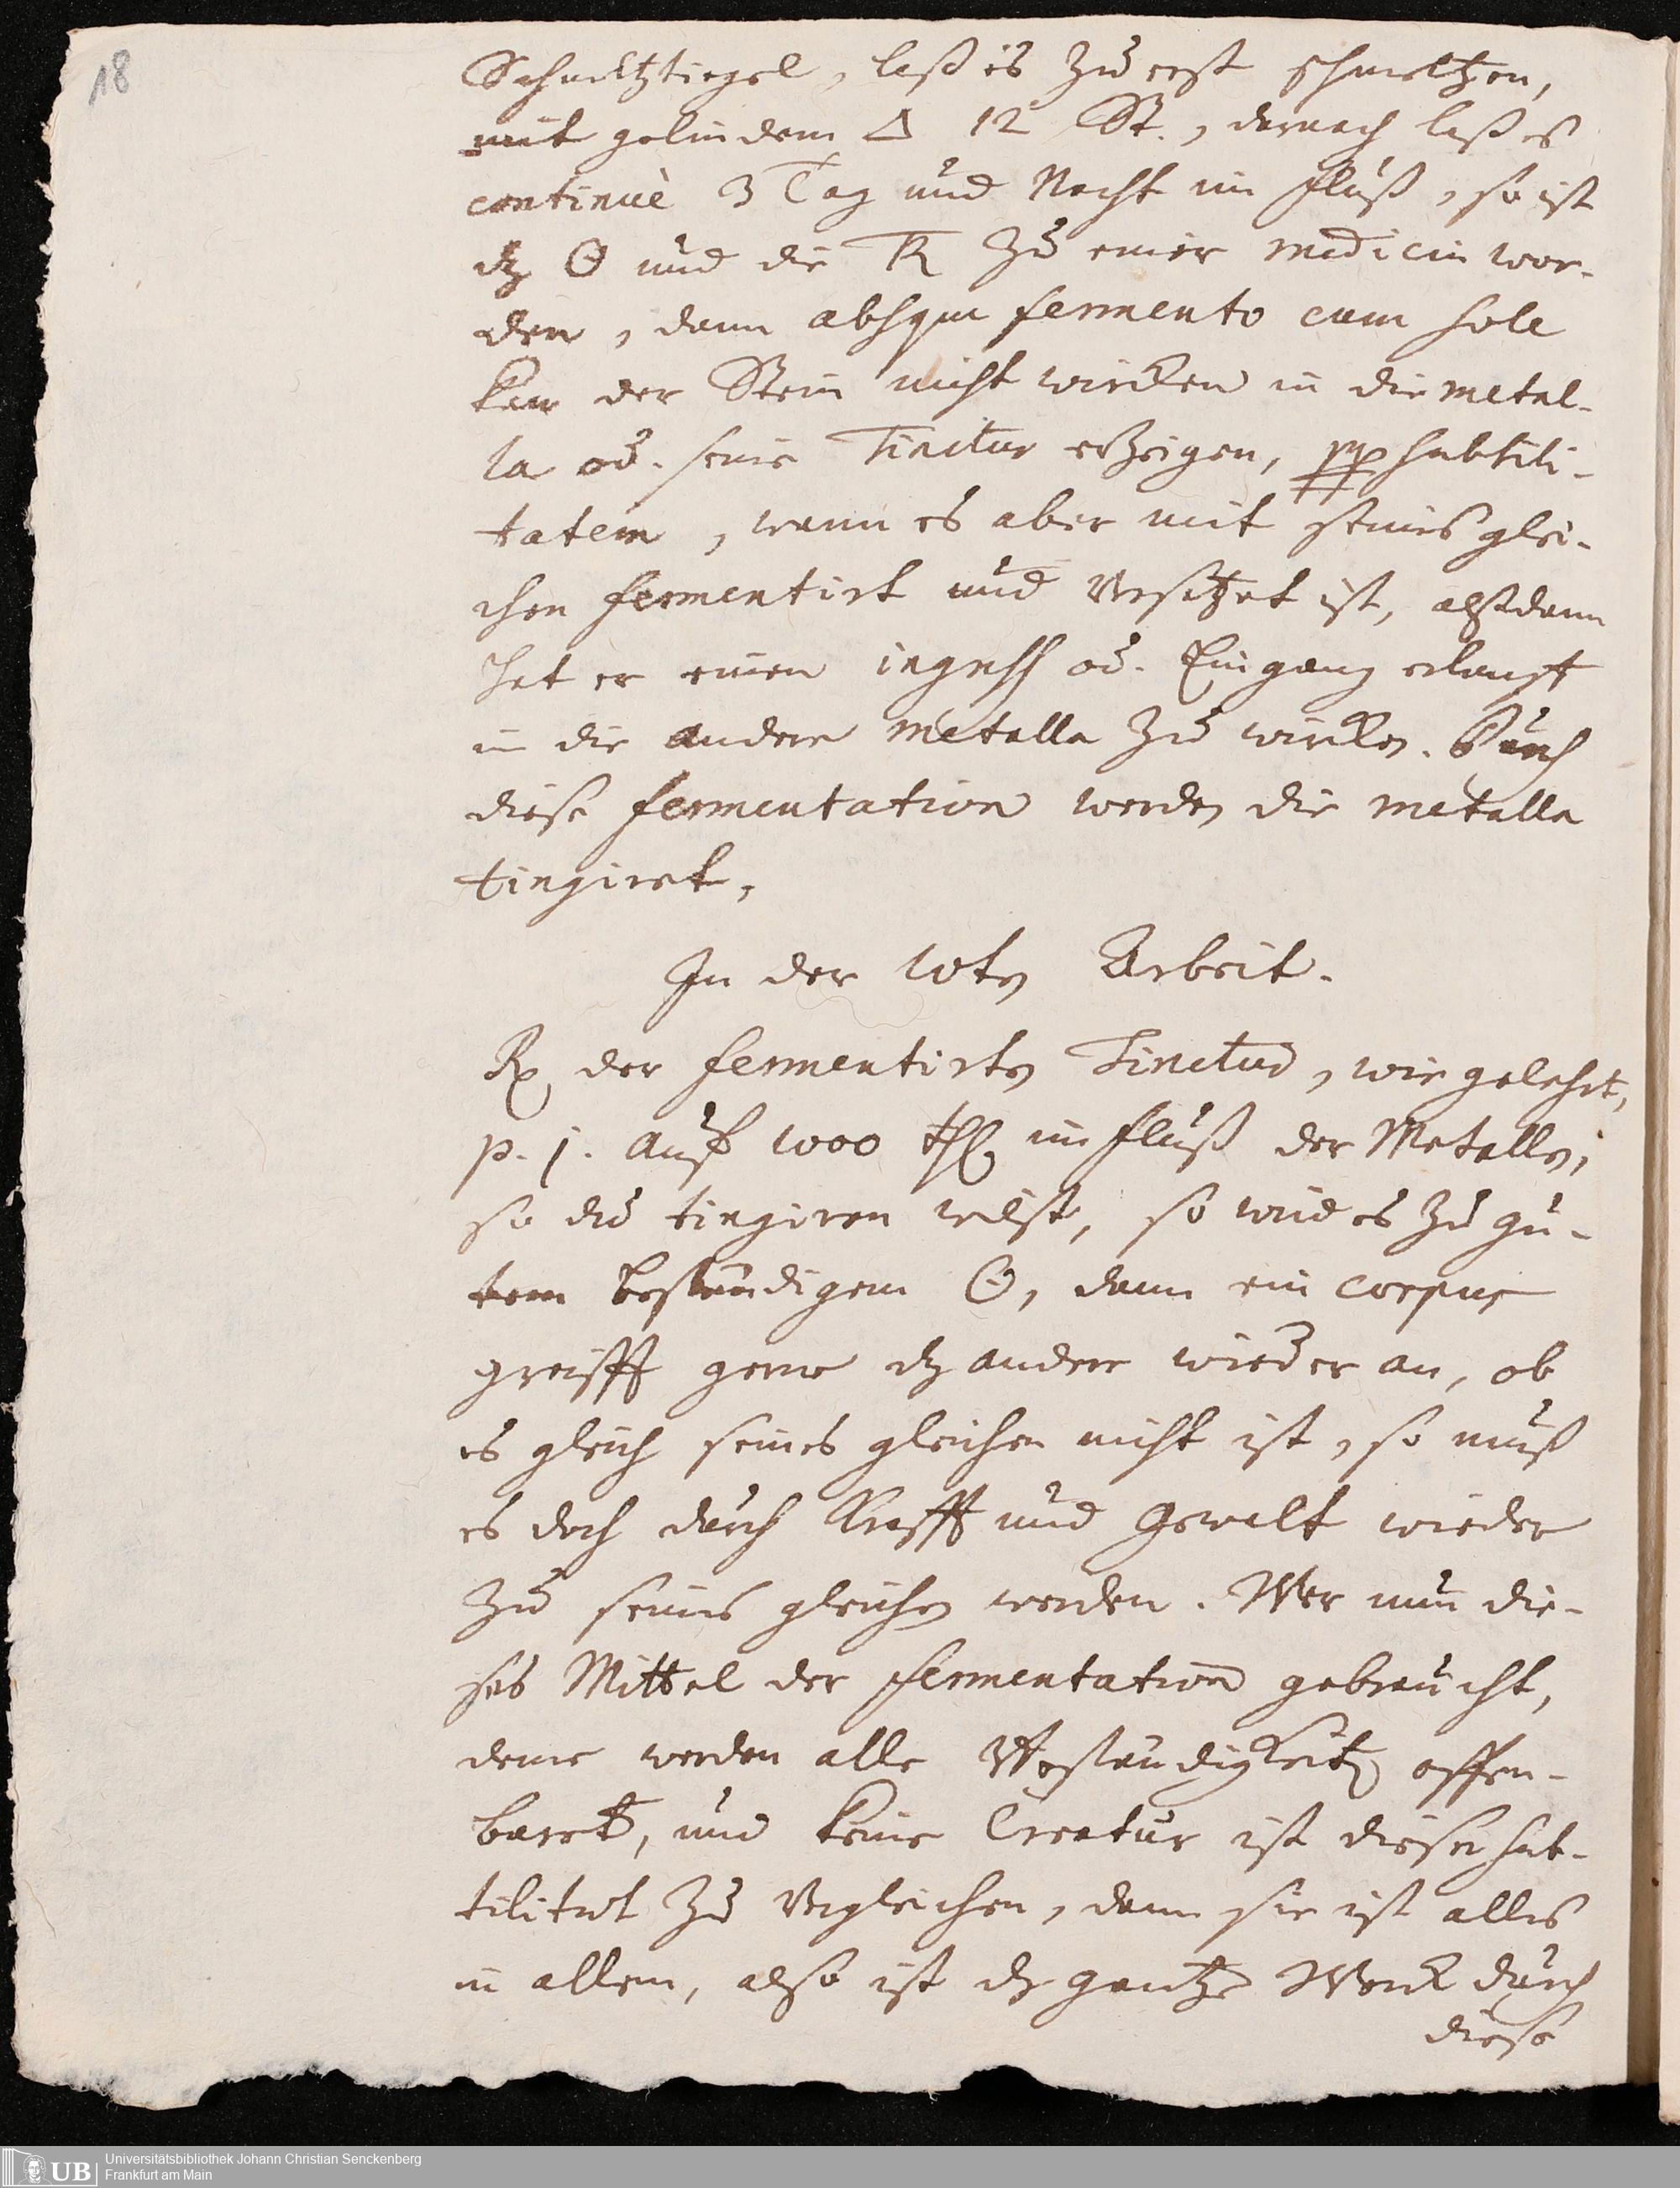 18
Schmeltztiegel, laß es zu erst schmeltzen,
mit gelindem 🜂 12 St., darnach laß es
continuè 3 Tag und Nacht im Fluß, so ist
dz ☉ und die TR zu einer medicin wor-
den, dann absque fermento cum sole
kan der Stein nicht wircken in die metal-
la od. seine Tinctur erzeigen, ppp subtili-
tatem, wann es aber mit seines glei-
chen fermentirt und versetzet ist, alßdann
hat er einen ingress od. Eingang erlangt
in die andere metalla zu wircken. Durch
diese fermentation werden die metalla
tingiret,
In der 10ten Arbeit.
Rx der fermentirten Tinctur, wie gelehrt,
p. j. auf 1000 thl. im Fluß der Metallen,
so du tingiren wilst, so wird es zu gu-
tem beständigem ☉, dann ein corpus
greifft gerne dz andere wieder an, ob
es gleich seines gleichen nicht ist, so muß
es doch durch Krafft und Gewalt wieder
zu seines gleichen werden. Wer nun die-
ses Mittel der fermentation gebraucht,
deme werden alle Verständigkeiten offen-
baret, und keine Creatur ist dieser sub-
tilitet zu vergleichen, dann sie ist alles
in allem, also ist dz gantze Werck durch
diese
UB
Universitätsbibliothek Johann Christian Senckenberg
Frankfurt am Main